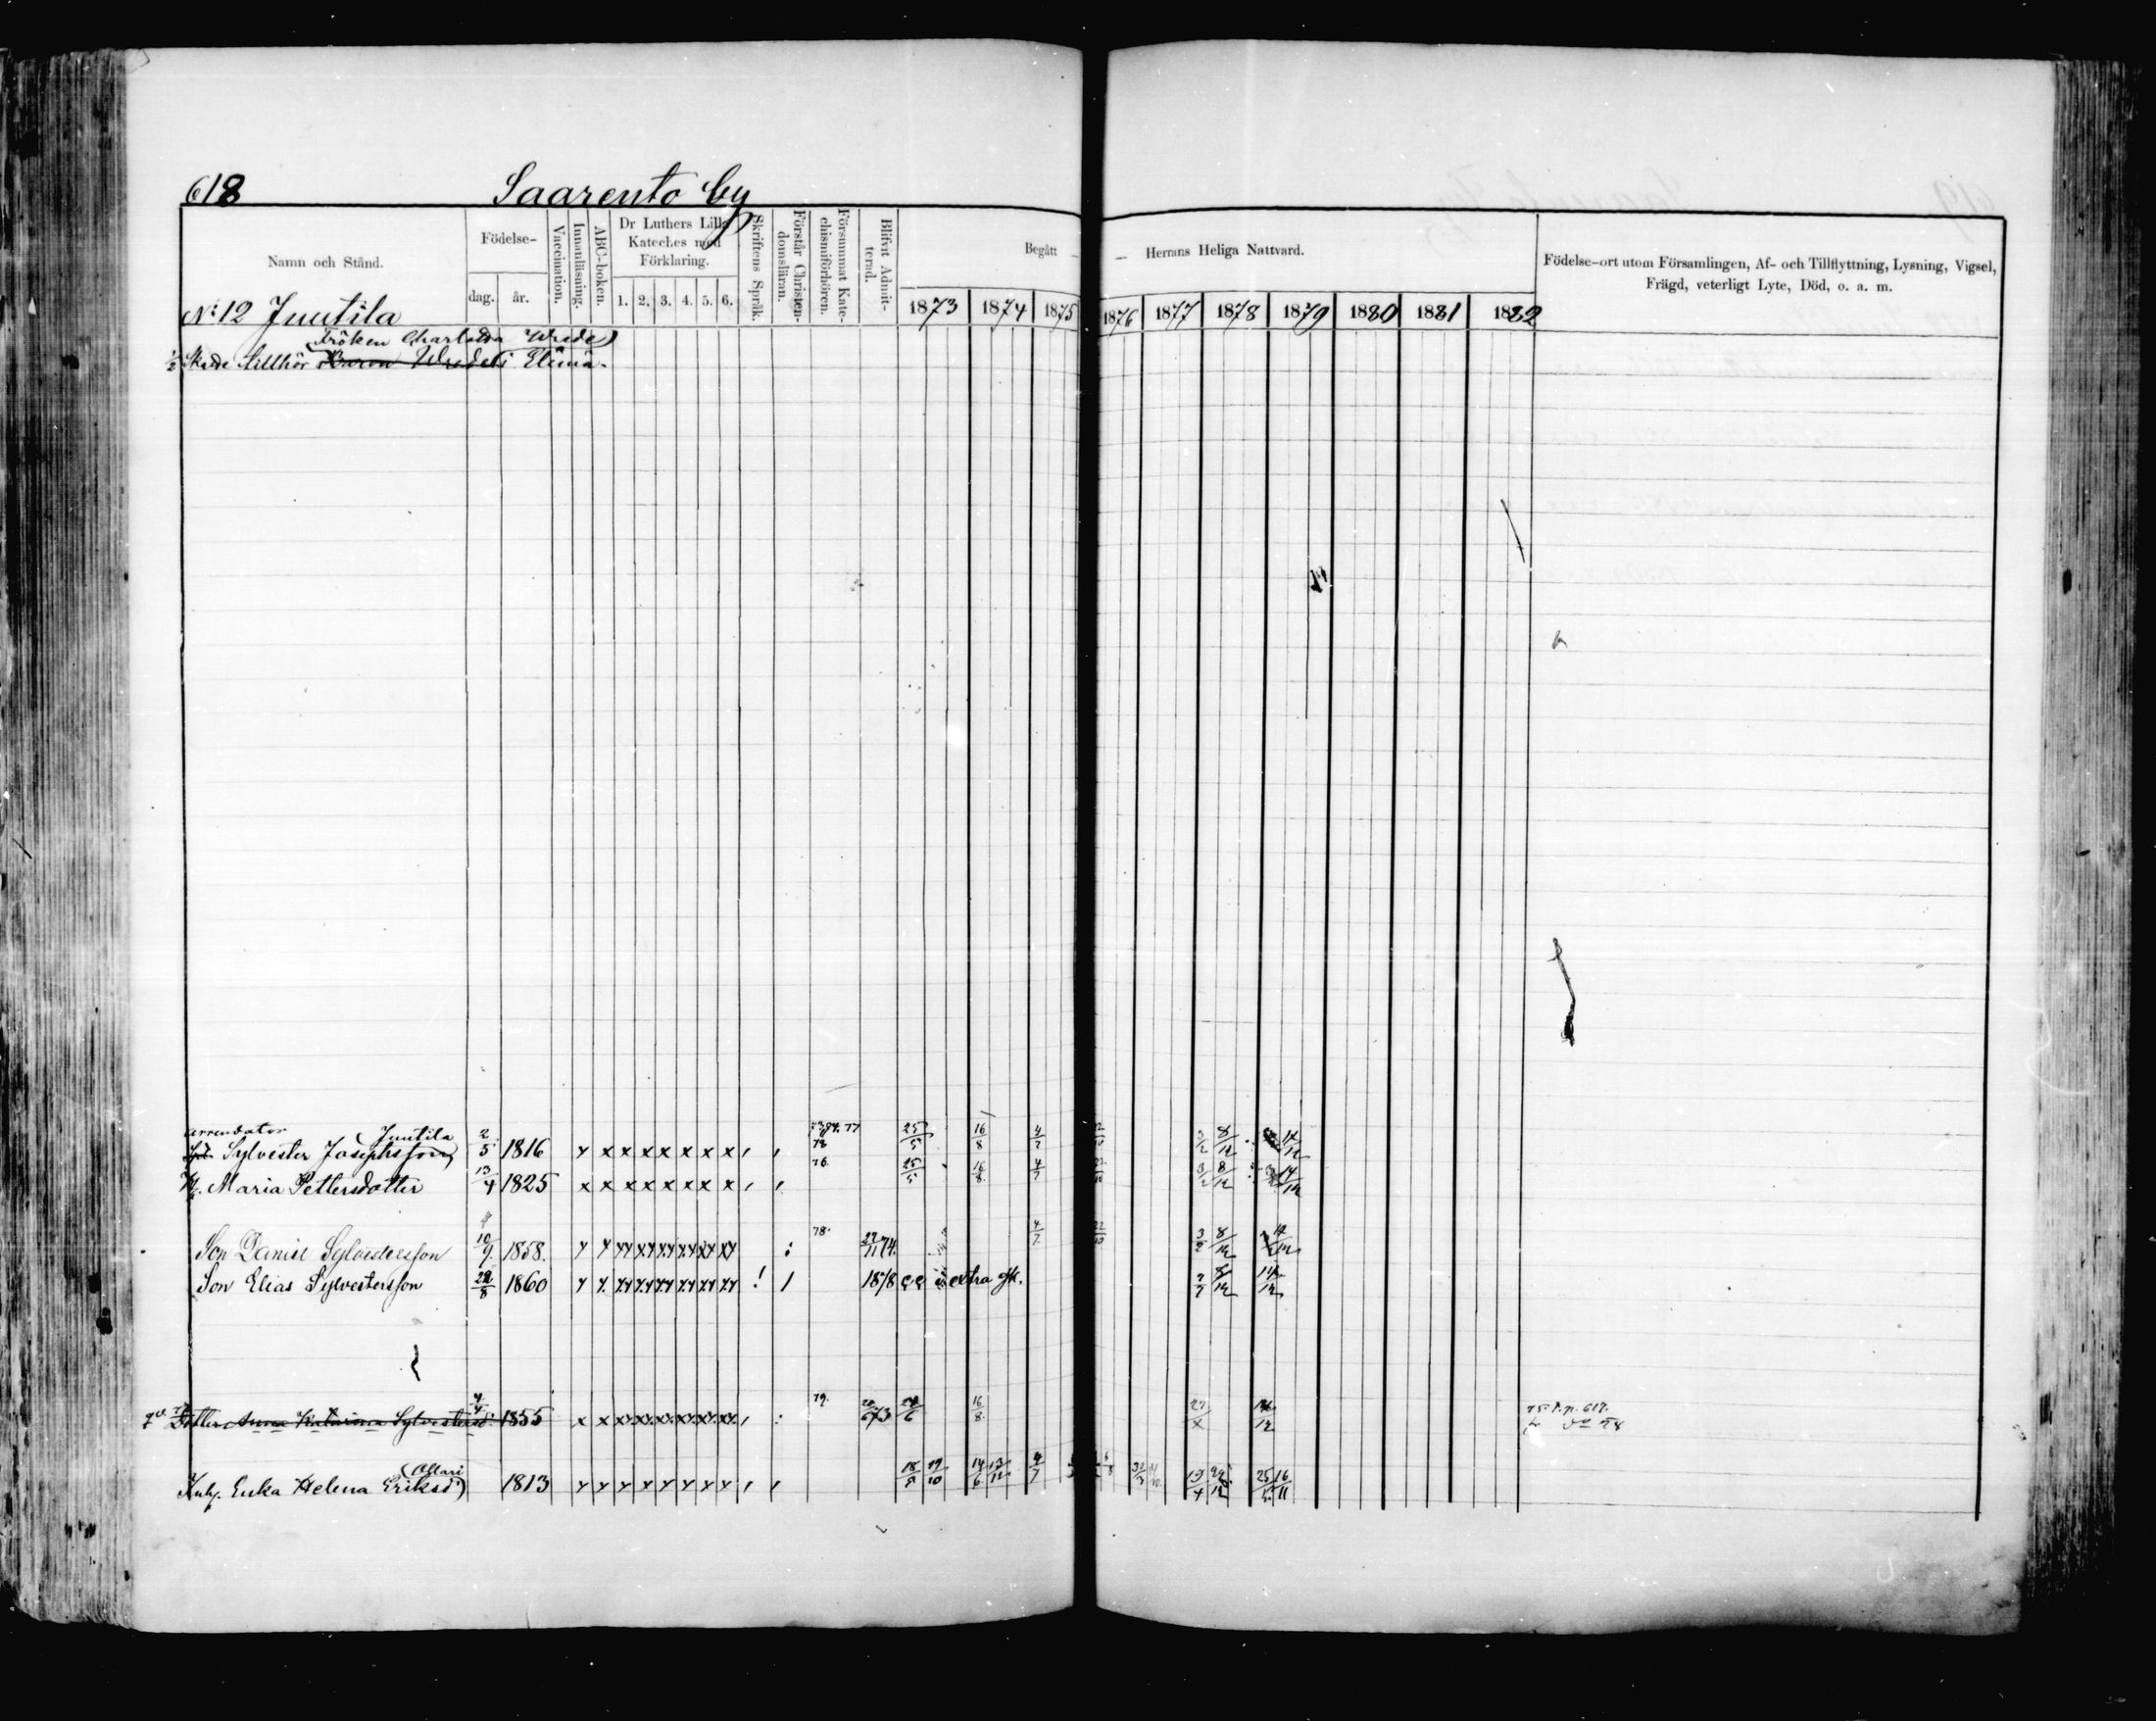 618 Saarento by
Namn och Stånd.
Födelse-
dag. år.
Vaccination.
Innanläsning.
ABC-boken.
Dr Luthers Lilla Kateches med Förklaring.
1. 2. 3. 4. 5. 6.
Skriftens Språk.
Förstår Christen-domsläran.
Försummat Kate-chismiförhören.
Blifvit Admit-terad.
Begått — — Herrans Heliga Nattvard.
1873 1874 1875 1876 1877 1878 1879 1880 1881 1882
Födelse-ort utom Församlingen, Af- och Tillflyttning, Lysning, Vigsel,
Frägd, veterligt Lyte, Död, o. a. m.
No 12 Juutila
Fröken Charlotta Wrede
1/2 Skatte tillhör Baron Wrede i Elimä.
Arrendator Juutila
Sylvester Josephsson 2/5 1816 x x x x x x x x 25/5 16/8 4/7 3/2 8/12 14/12
Maria Pettersdotter 13/4 1825 x x x x x x x x 76. 25/5 16/8 4/7 3/2 8/12 14/12
Son Daniel Sylvestersson 10/9 1858. 78. 4/7 3/2 8/12 14/12
Son Elias Sylvestersson 22/8 1860 ! / 1878 extra gk. 8/12 14/12
Dotter Anna Katarina Sylvestersd. 4/4 1855 79. 73 24/6 16/8 14/12 75 P. p. 617.
78
Inh. Erika Helena Eriksd. 1813 x x x x x x x x 18/5 19/10 14/6 13/12 4/7 25/5 16/11